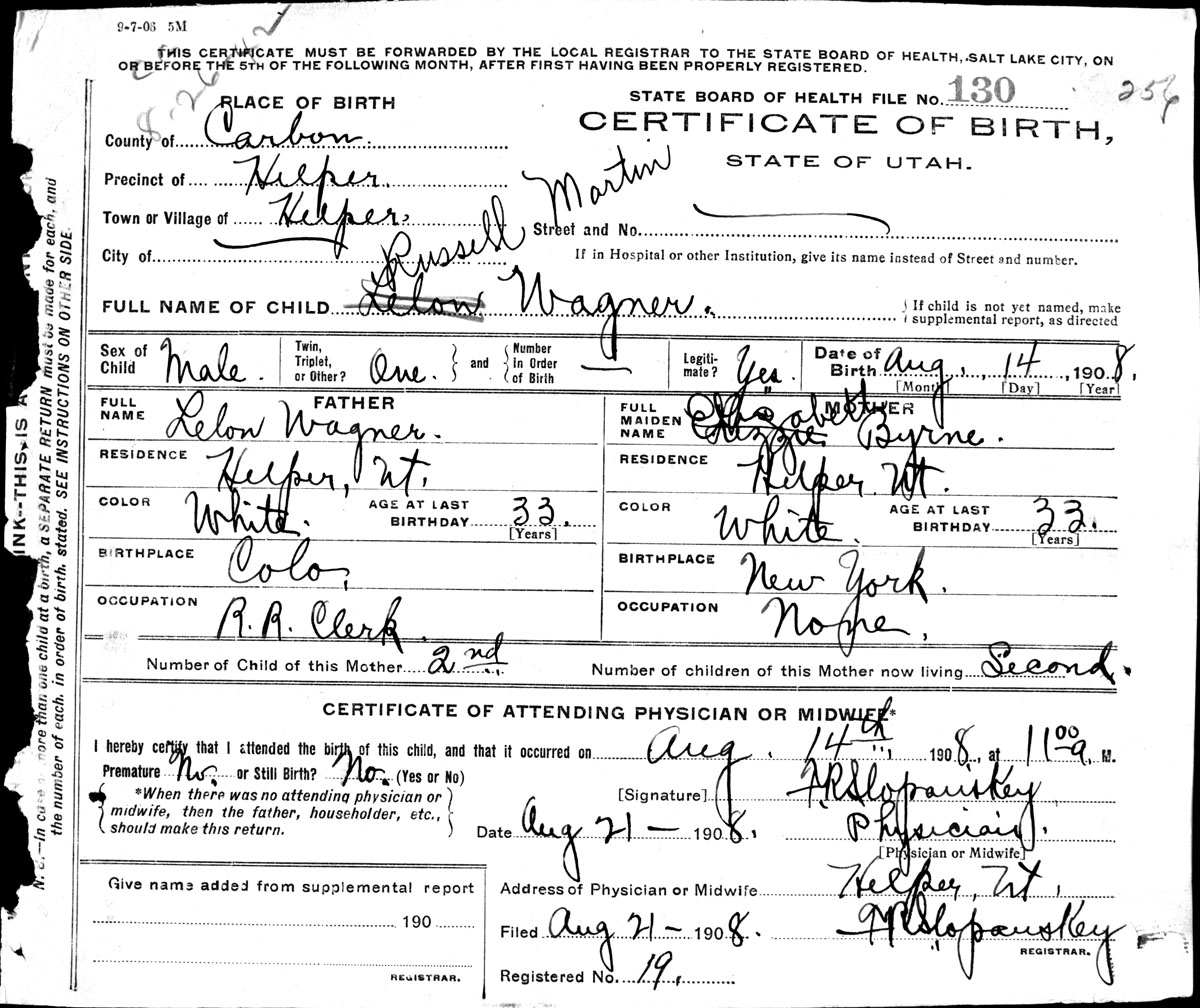 9-7-06 5M
THIS CERTIFICATE MUST BE FORWARDED BY THE LOCAL REGISTRAR TO THE STATE BOARD OF HEALTH, SALT LAKE CITY, ON
OR BEFORE THE 5TH OF THE FOLLOWING MONTH, AFTER FIRST HAVING BEEN PROPERLY REGISTERED.
STATE BOARD OF HEALTH FILE No. 130
256
PLACE OF BIRTH
CERTIFICATE OF BIRTH,
STATE OF UTAH.
County of Carbon.
Precinct of Helper.
Town or Village of Helper.
Street and No.
City of
If in Hospital or other Institution, give its name instead of Street and number.
Russell Martin
FULL NAME OF CHILD Lelon Wagner.
If child is not yet named, make
supplemental report, as directed
Sex of Child Male.
Twin, Triplet, or Other? One. and Number in Order of Birth —
Legiti-mate? Yes.
Date of Birth Aug. 14, 1908,
[Month] [Day] [Year]
FATHER
FULL NAME Lelon Wagner.
RESIDENCE Helper, Ut.
COLOR White. AGE AT LAST BIRTHDAY 33.
[Years]
BIRTHPLACE Colo.
OCCUPATION R. R. Clerk.
MOTHER
Elizabeth
FULL MAIDEN NAME Lizzie Byrne.
RESIDENCE Helper Ut.
COLOR White. AGE AT LAST BIRTHDAY 33.
[Years]
BIRTHPLACE New York.
OCCUPATION None,
Number of Child of this Mother 2nd
Number of children of this Mother now living Second.
CERTIFICATE OF ATTENDING PHYSICIAN OR MIDWIFE*
I hereby certify that I attended the birth of this child, and that it occurred on Aug. 14th, 1908, at 11 00 a. M.
Premature No. or Still Birth? No. (Yes or No)
*When there was no attending physician or
midwife, then the father, householder, etc.,
should make this return.
[Signature] F R Slopanskey
Date Aug 21 — 1908. Physician.
[Physician or Midwife]
Give name added from supplemental report
190
REGISTRAR.
Address of Physician or Midwife Helper, Ut.
Filed Aug 21 — 1908. F R Slopanskey
REGISTRAR.
Registered No. 19.
INK--THIS IS A
more than one child at a birth, a SEPARATE RETURN must be made for each, and
the number of each, in order of birth, stated. SEE INSTRUCTIONS ON OTHER SIDE.